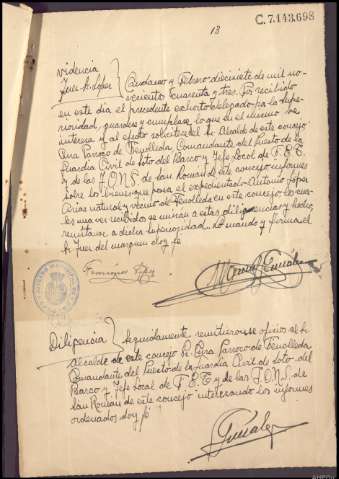 C.7.143.698
13
Providencia
Juez Sr. López
Candamo y Febrero diecisiete de mil no-
vecientos cuarenta y tres. Por recibido
en este día el precedente exhorto delegado por la Supe-
rioridad, guardese y cumplase lo que en el mismo se
interesa y al efecto solicitese del Sr. Alcalde de este concejo
Cura Parroco de Fenolleda Comandante del Puesto de la
Guardia Civil de Soto del Barco y Jefe Local de F.E.T.
y de las J.O.N.S. de San Roman de este concejo informes
sobre los bienes que posea el expedientado Antonio López
Arias natural y vecino de Fenolleda en este concejo, los cua-
les una vez recibidos se uniran a estas diligencias y hecho,
remitanse a dicha superioridad. Lo mando y firma el
Sr. Juez del margen doy fe
Diligencia
Seguidamente remitieronse oficios al Sr.
Alcalde de este concejo Sr. Cura Parroco de Fenolleda
Comandante del Puesto de la Guardia Civil de Soto del
Barco y Jefe Local de F.E.T. y de las J.O.N.S. de
San Roman de este concejo interesando los informes
ordenados doy fe